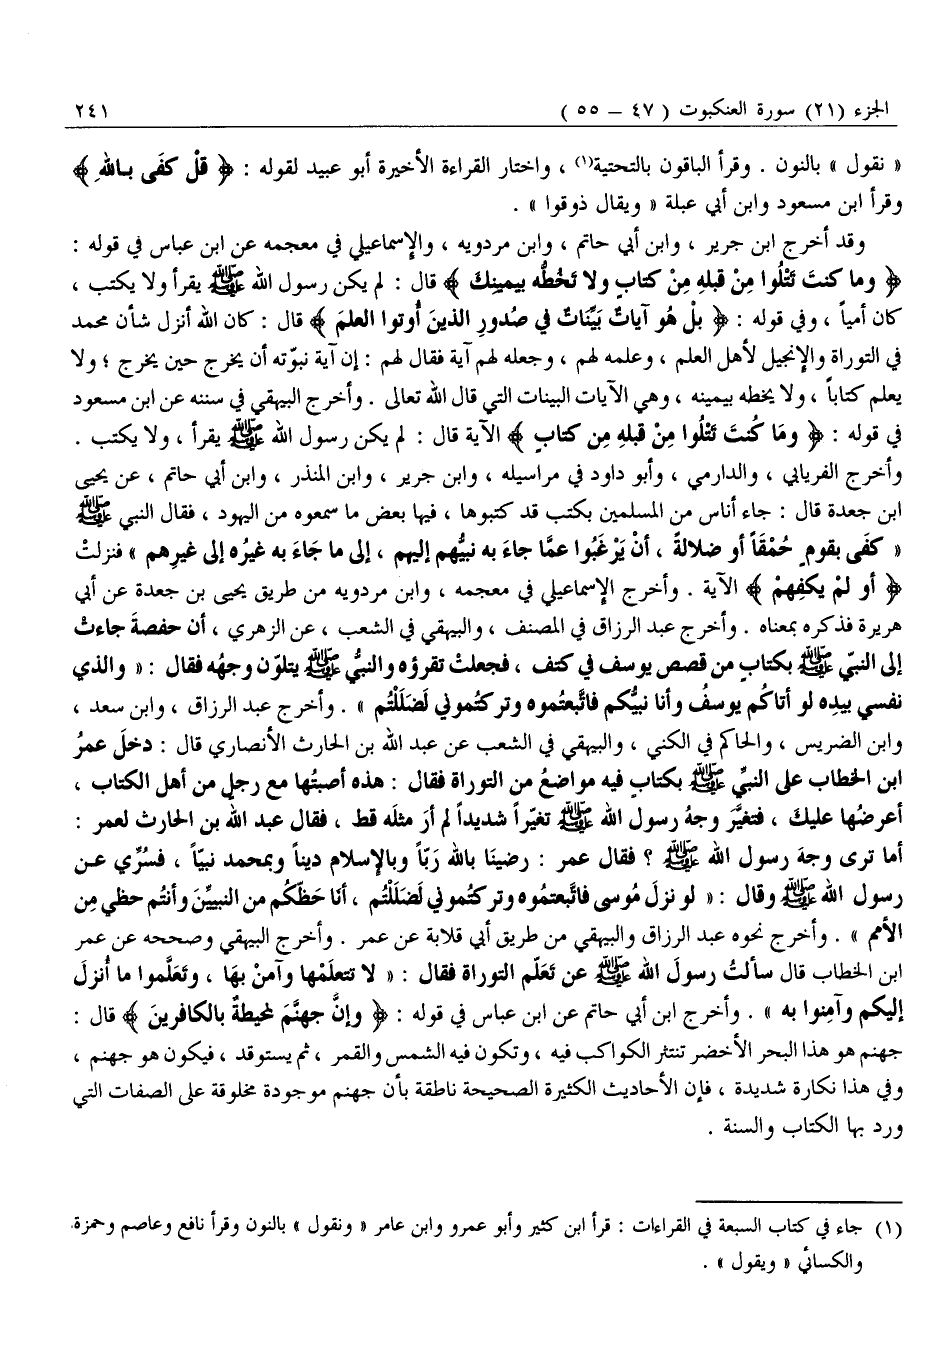 الجزء (٢١) سورة العنكبوت ( ٤٧ – ٥٥ ) ٢٤١
« نقول » بالنون . وقرأ الباقون بالتحتية(١) ، واختار القراءة الأخيرة أبو عبيد لقوله : ﴿ قلْ كفَى بـاللهِ ﴾
وقرأ ابن مسعود وابن أبي عبلة « ويقال ذوقوا » .
وقد أخرج ابن جرير ، وابن أبي حاتم ، وابن مردويه ، والإسماعيلي في معجمه عن ابن عباس في قوله :
﴿ وما كنتَ تَتْلُوا مِنْ قبلهِ مِنْ كتابٍ ولا تَخطُّه بيمينكَ ﴾ قال : لم يكن رسول الله ﷺ يقرأ ولا يكتب ،
كان أمياً ، وفي قوله : ﴿ بلْ هُو آياتٌ بَيِّنَاتٌ في صُدورِ الذينَ أُوتوا العلمَ ﴾ قال : كان الله أنزل شأن محمد
في التوراة والإنجيل لأهل العلم ، وعلمه لهم ، وجعله لهم آية فقال لهم : إن آية نبوّته أن يخرج حين يخرج ؛ ولا
يعلم كتاباً ، ولا يخطه بيمينه ، وهي الآيات البينات التي قال الله تعالى . وأخرج البيهقي في سننه عن ابن مسعود
في قوله : ﴿ ومَا كُنتَ تَتْلُوا مِنْ قبلهِ مِن كتابٍ ﴾ الآية قال : لم يكن رسول الله ﷺ يقرأ ، ولا يكتب .
وأخرج الفريابي ، والدارمي ، وأبو داود في مراسيله ، وابن جرير ، وابن المنذر ، وابن أبي حاتم ، عن يحيى
ابن جعدة قال : جاء أناس من المسلمين بكتب قد كتبوها ، فيها بعض ما سمعوه من اليهود ، فقال النبي ﷺ
« كفَى بقومٍ حُمْقَاً أو ضلالةً ، أنْ يَرْغَبُوا عمَّا جاءَ به نبيُّهم إليهم ، إلى ما جَاءَ به غيرُه إلى غيرِهم » فنزلتْ
﴿ أو لمْ يكفِهمْ ﴾ الآية . وأخرج الإسماعيلي في معجمه ، وابن مردويه من طريق يحيى بن جعدة عن أبي
هريرة فذكره بمعناه . وأخرج عبد الرزاق في المصنف ، والبيهقي في الشعب ، عن الزهري ، أن حفصةَ جاءتْ
إلى النبيّ ﷺ بكتابٍ من قصص يوسف في كتف ، فجعلتْ تقرؤه والنبيُّ ﷺ يتلوّن وجهُه فقال : « والذي
نفسي بيدِه لو أتاكُم يوسفُ وأنا نبيُّكم فاتَّبعتُموه وتركتُموني لَضلَلْتُم » . وأخرج عبد الرزاق ، وابن سعد ،
وابن الضريس ، والحاكم في الكني ، والبيهقي في الشعب عن عبد الله بن الحارث الأنصاري قال : دخلَ عمرُ
ابن الخطاب على النبيِّ ﷺ بكتابٍ فيه مواضعُ من التوراة فقال : هذه أصبتُها مع رجلٍ من أهل الكتاب ،
أعرضُها عليكَ ، فتغيَّرَ وجهُ رسول الله ﷺ تغيّراً شديداً لم أرَ مثلَه قط ، فقال عبد الله بن الحارث لعمر :
أما ترى وجهَ رسول الله ﷺ ؟ فقال عمر : رضينَا بالله رَبّاً وبالإسلام ديناً وبمحمد نبيّاً ، فسُرِّي عـن
رسول الله ﷺ وقال : « لو نزلَ مُوسى فاتَّبعتُموه وتركتُموني لَضلَلْتُم ، أنا حَظُّكُم من النبيِّنَ وأنتُم حظي مِن
الأمم » . وأخرج نحوه عبد الرزاق والبيهقي من طريق أبي قلابة عن عمر . وأخرج البيهقي وصححه عن عمر
ابن الخطاب قال سألتُ رسولَ الله ﷺ عن تَعَلّم التوراة فقال : « لا تتعلَمْها وآمنْ بهَا ، وتَعَلَّموا ما أُنزلَ
إليكم وآمِنوا به » . وأخرج ابن أبي حاتم عن ابن عباس في قوله : ﴿ وإنَّ جهنَّمَ لمحيطةٌ بالكافرينَ ﴾ قال :
جهنم هو هذا البحر الأخضر تنتثر الكواكب فيه ، وتكون فيه الشمس والقمر ، ثم يستوقد ، فيكون هو جهنم ،
وفي هذا نكارة شديدة ، فإن الأحاديث الكثيرة الصحيحة ناطقة بأن جهنم موجودة مخلوقة على الصفات التي
ورد بها الكتاب والسنة .
(١) جاء في كتاب السبعة في القراءات : قرأ ابن كثير وأبو عمرو وابن عامر « ونقول » بالنون وقرأ نافع وعاصم وحمزة
والكسائي « ويقول » .